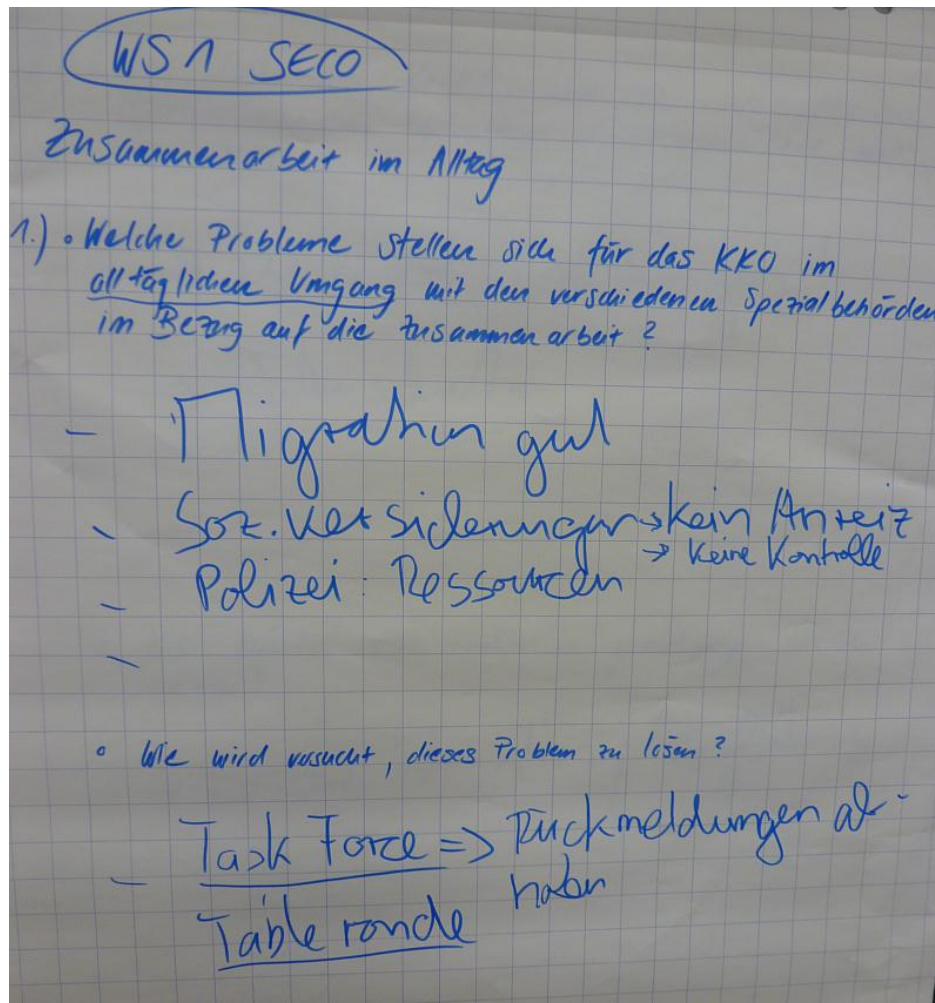 WS 1 SECO
Zusammenarbeit im Alltag
1.) • Welche Probleme stellen sich für das KKO im
alltäglichen Umgang mit den verschiedenen Spezialbehörden
im Bezug auf die Zusammenarbeit ?
- Migration gut
- Soz. Versicherungen → kein Anreiz
→ keine Kontrolle
- Polizei : Ressourcen
-
• Wie wird versucht, dieses Problem zu lösen ?
- Task Force => Rückmeldungen
haben
Table ronde